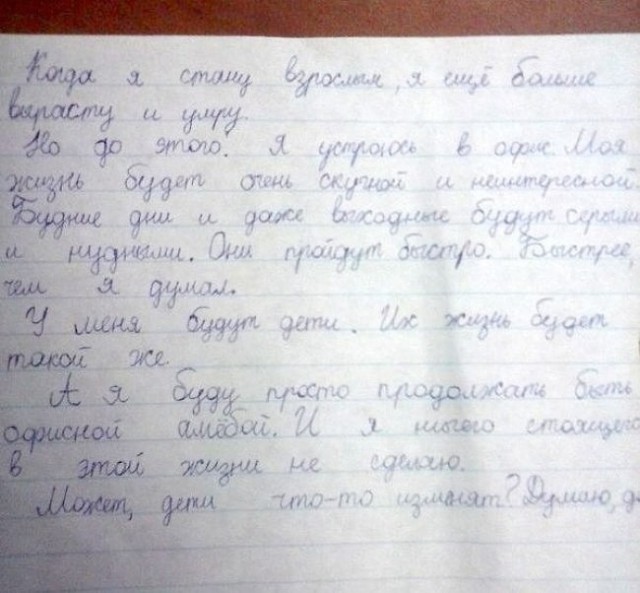 Когда я стану взрослым, я ещё больше
вырасту и умру.
Но до этого. Я устроюсь в офис. Моя
жизнь будет очень скучной и неинтересной
Будние дни и даже выходные будут серыми
и нудными. Они пройдут быстро. Быстрее,
чем я думал.
У меня будут дети. Их жизнь будет
такой же.
А я буду просто продолжать быть
офисной амёбой. И я ничего стоящего
в этой жизни не сделаю.
Может, дети что-то изменят? Думаю, да